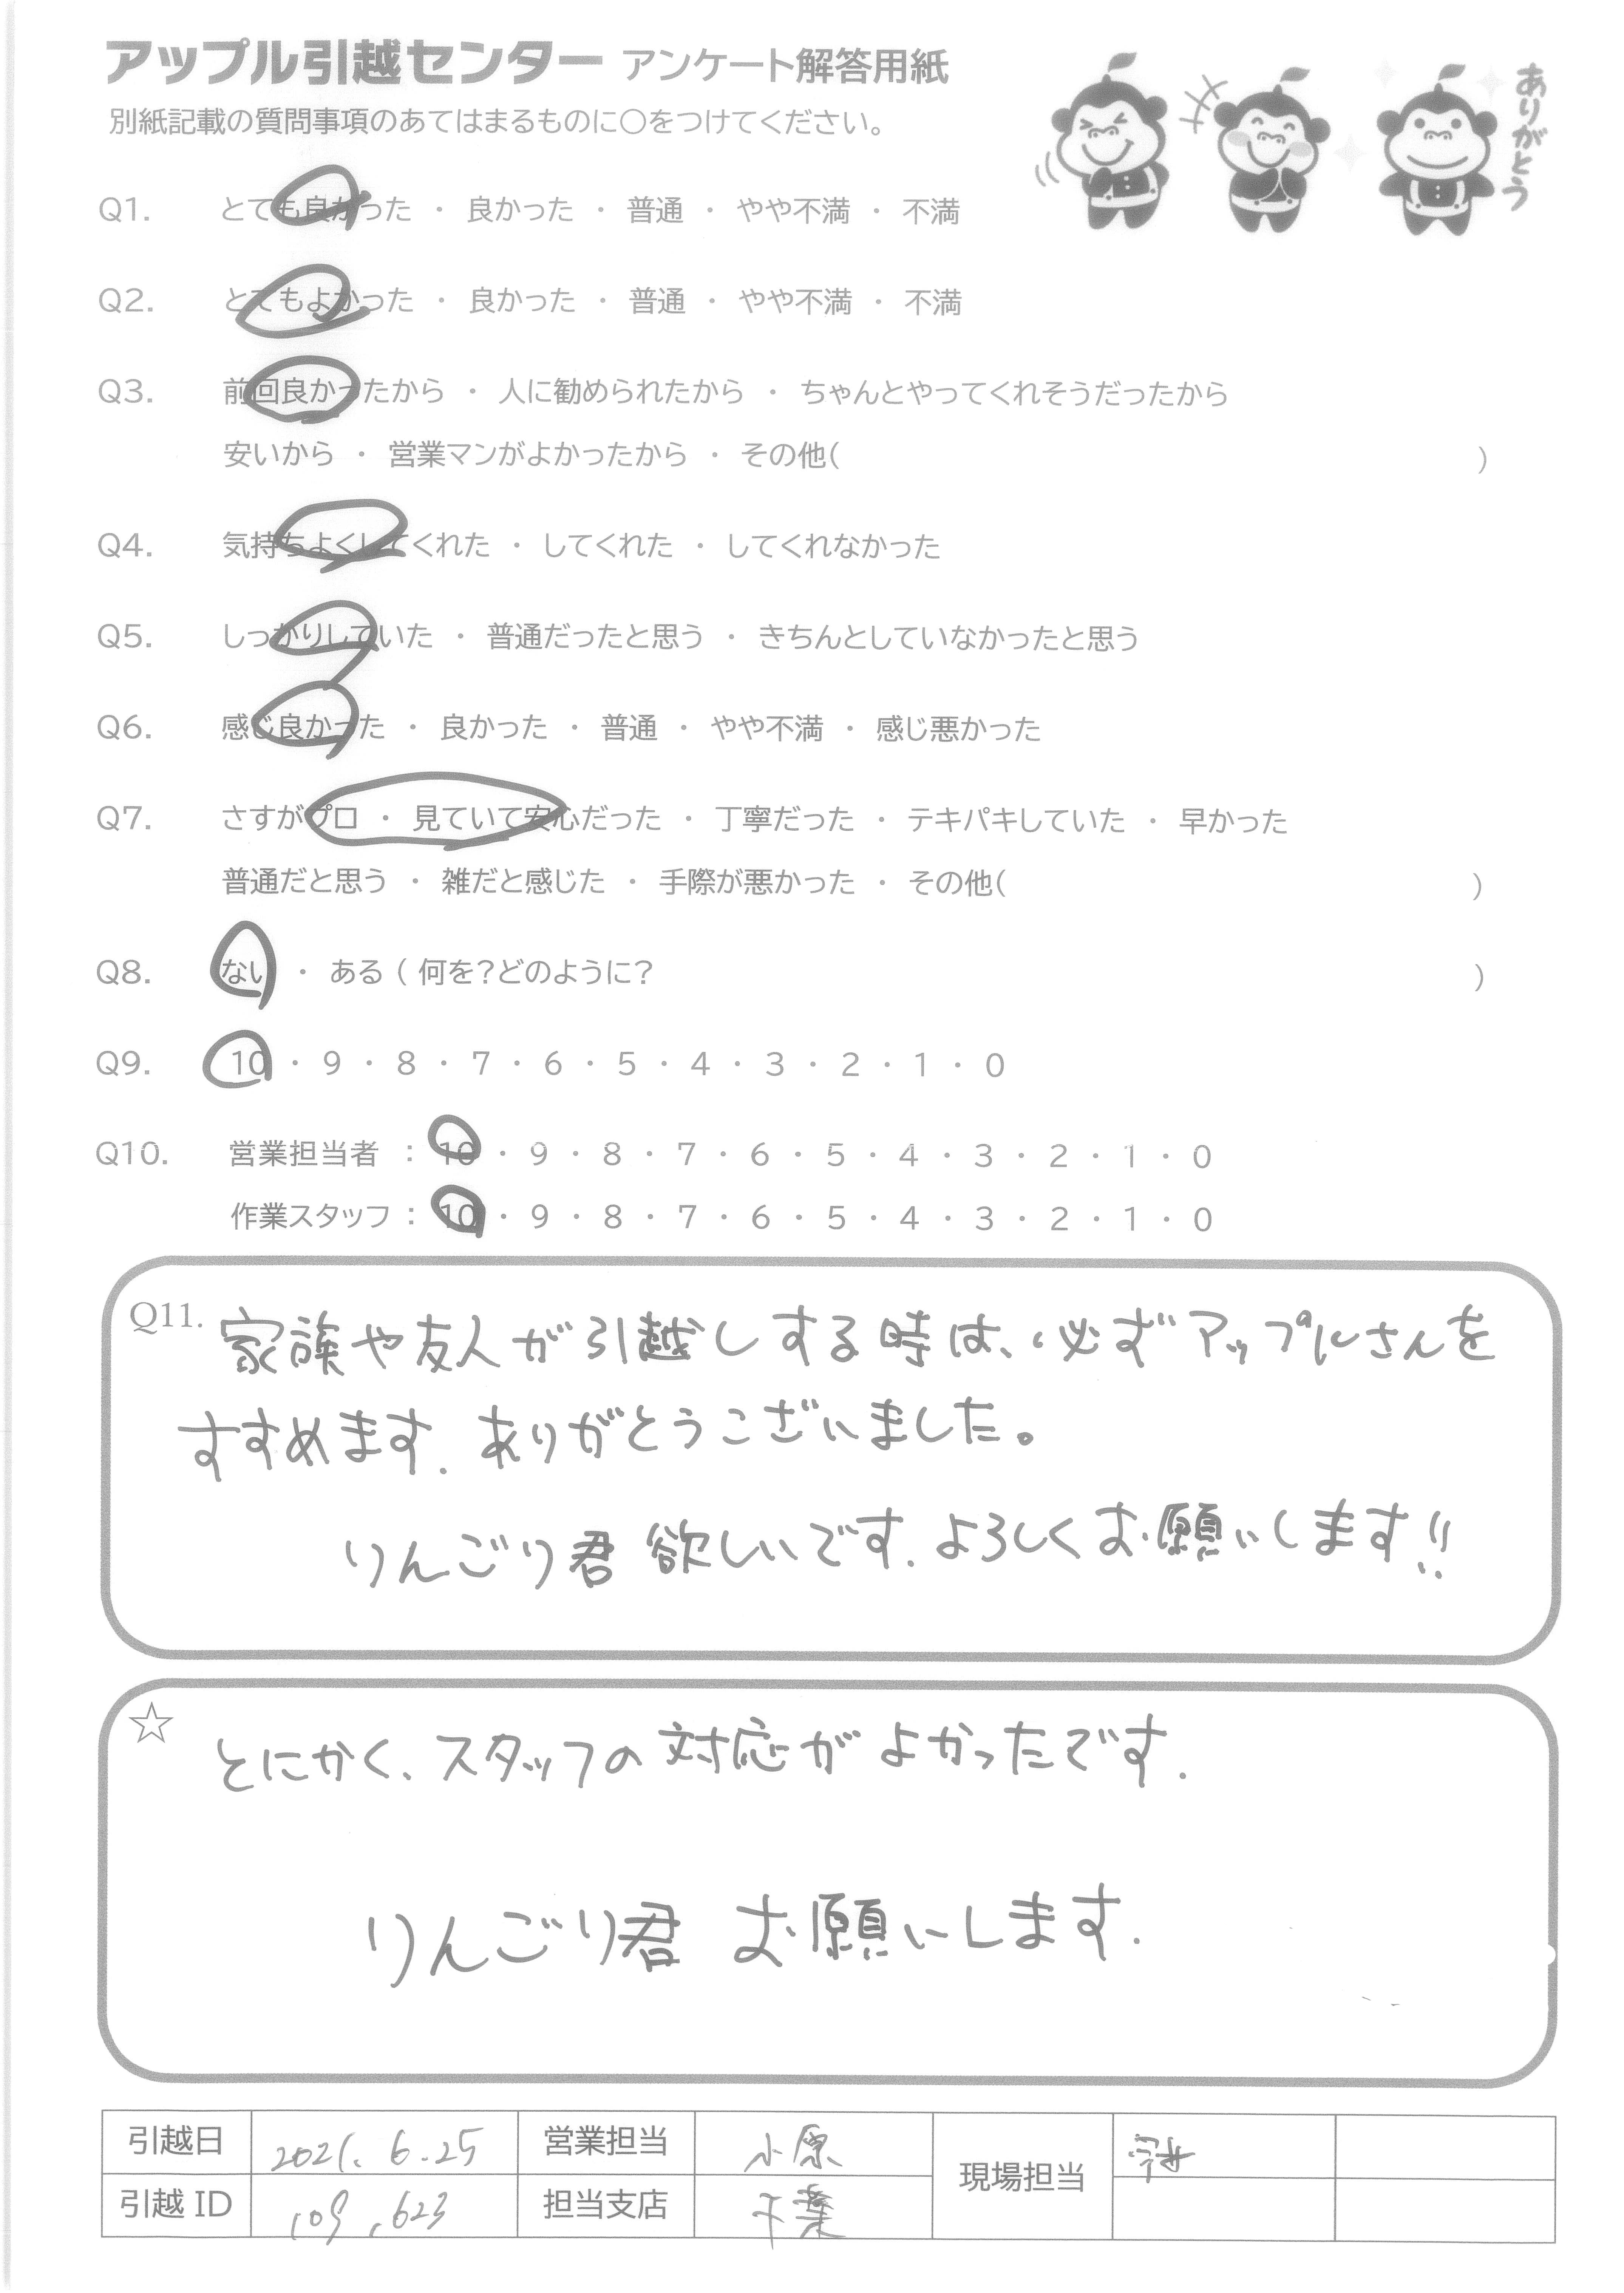 アップル引越センター アンケート解答用紙
ありがとう
別紙記載の質問事項のあてはまるものに○をつけてください。
Q1. とても良かった ・ 良かった ・ 普通 ・ やや不満 ・ 不満
Q2. とてもよかった ・ 良かった ・ 普通 ・ やや不満 ・ 不満
Q3. 前回良かったから ・ 人に勧められたから ・ ちゃんとやってくれそうだったから
安いから ・ 営業マンがよかったから ・ その他( )
Q4. 気持ちよくしてくれた ・ してくれた ・ してくれなかった
Q5. しっかりしていた ・ 普通だったと思う ・ きちんとしていなかったと思う
Q6. 感じ良かった ・ 良かった ・ 普通 ・ やや不満 ・ 感じ悪かった
Q7. さすがプロ ・ 見ていて安心だった ・ 丁寧だった ・ テキパキしていた ・ 早かった
普通だと思う ・ 雑だと感じた ・ 手際が悪かった ・ その他( )
Q8. ない ・ ある ( 何を?どのように? )
Q9. 10 ・ 9 ・ 8 ・ 7 ・ 6 ・ 5 ・ 4 ・ 3 ・ 2 ・ 1 ・ 0
Q10. 営業担当者 : 10 ・ 9 ・ 8 ・ 7 ・ 6 ・ 5 ・ 4 ・ 3 ・ 2 ・ 1 ・ 0
作業スタッフ : 10 ・ 9 ・ 8 ・ 7 ・ 6 ・ 5 ・ 4 ・ 3 ・ 2 ・ 1 ・ 0
Q11. 家族や友人が引越しする時は、必ずアップルさんを
すすめます. ありがとうございました。
りんごり君 欲しいです. よろしくお願いします!!
☆ とにかく、スタッフの対応がよかったです.
りんごり君 お願いします.
引越日 2021. 6.25 営業担当 小原 現場担当
引越ID 109,623 担当支店 千葉